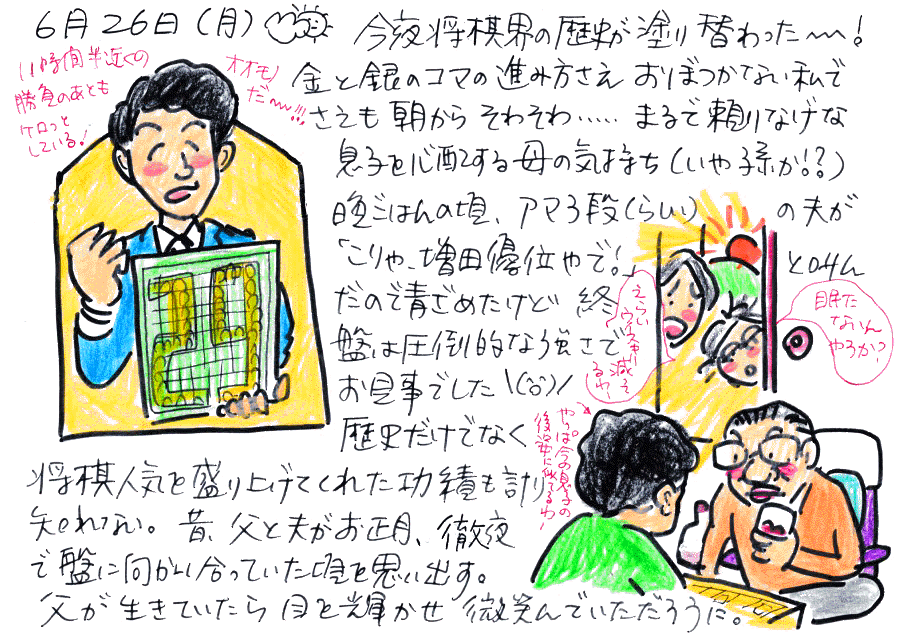 6月26日(月)
今夜将棋界の歴史が塗り替わった〜!
11時間半近くの
勝負のあとも
ケロっと
している!
オオモノ
だ〜!!!
金と銀のコマの進み方さえ おぼつかない私で
さえも朝からそわそわ…… まるで頼りなげな
息子を心配する母の気持ち(いや孫か!?)
晩ごはんの頃、アマ3段(らしい)の夫が
「こりゃ、増田優位やで!」と叫ん
だので青ざめたけど 終
盤は圧倒的な強さで
お見事でした\(^o^)/
歴史だけでなく
将棋人気を盛り上げてくれた功績も計り
知れない。昔、父と夫がお正月、徹夜
で盤に向かい合っていた頃を思い出す。
父が生きていたら目を輝かせ 微笑んでいただろうに。
えらい
ウイスキー
減って
るわ!
眠た
ないん
やろか?
やっぱ今の息子の
後姿に似てるわ!